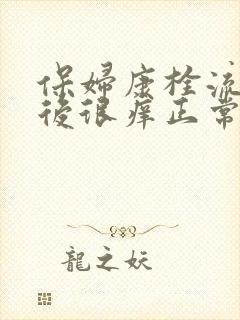 保婦康栓流
後很癢正常
龍之妖